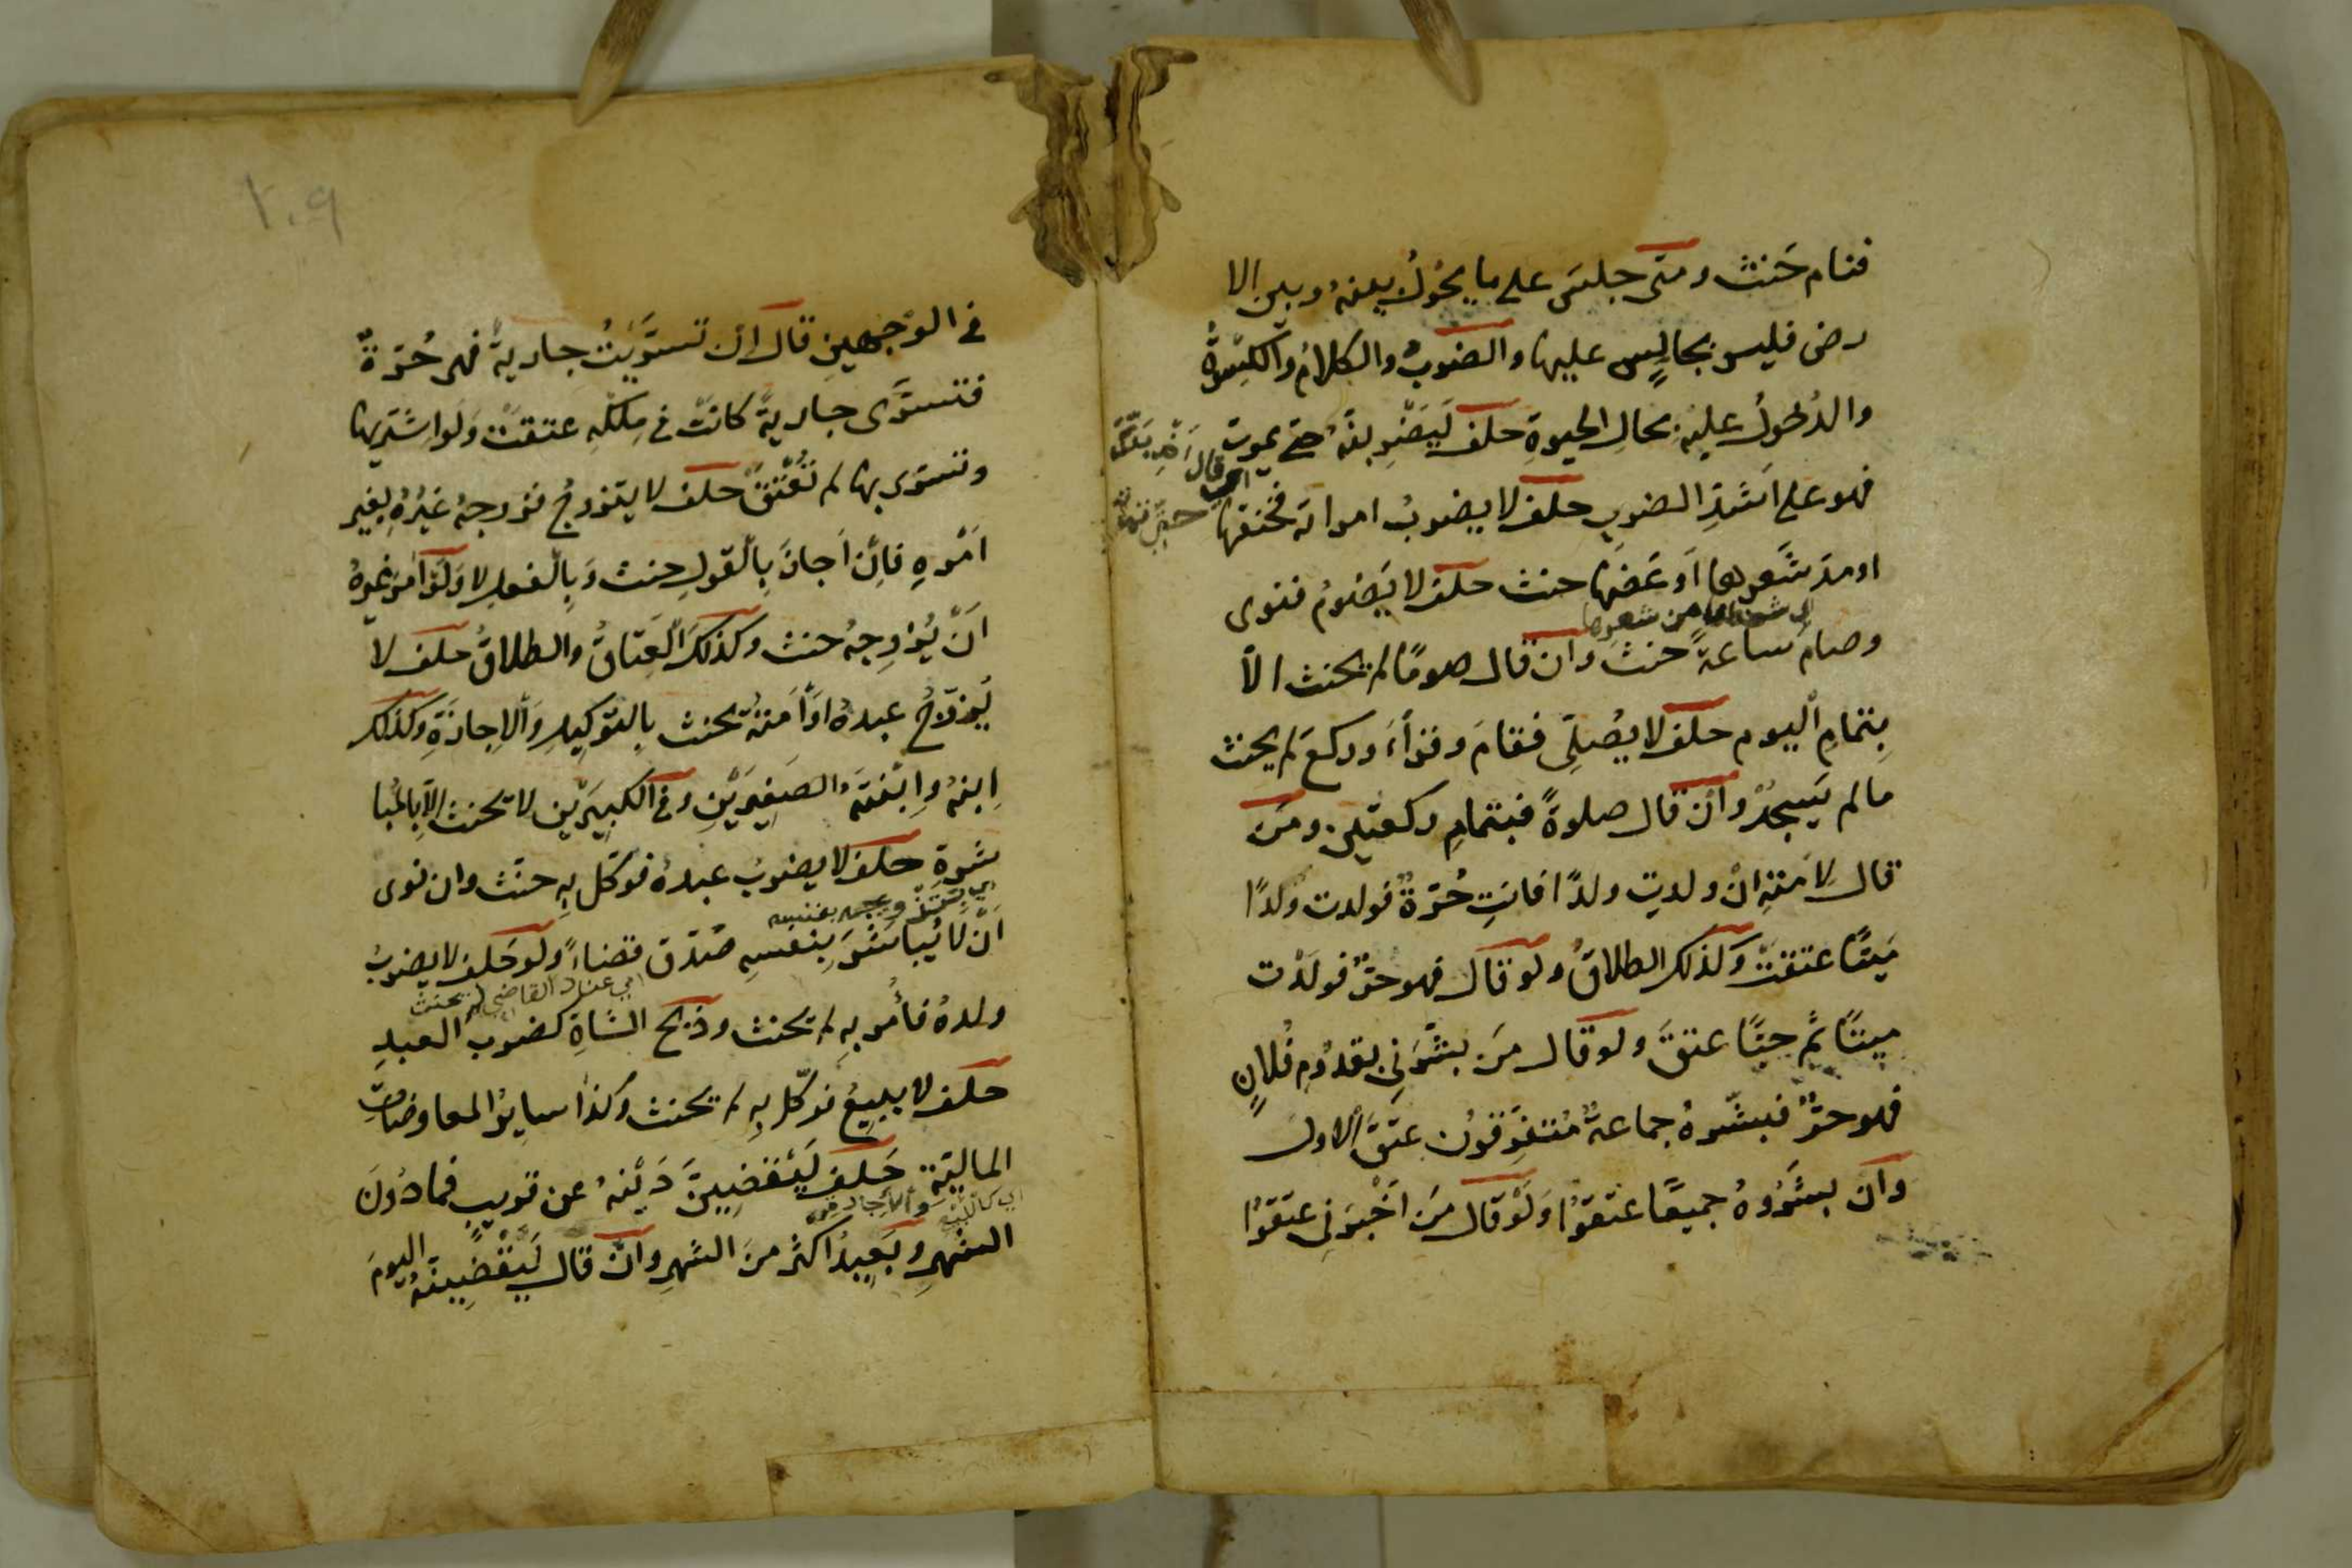 فنام حَنث ومتى جلسَ على ما يحُولُ بينهُ وبين الا
رض فليس بجالِسٍ عليها والضربُ والكلامُ والكِسْوةُ
والدُخولُ عليهِ بحالِ الحيوةِ حلف لَيَضْرِبنّهُ حتى يموت
فهو على اَشَدِّ الضربِ حلف لا يضربُ امراته فخنقها
او مدّ شَعرها اَو عَضّها حنث حلف لا يَصُومُ فنوى
اي شعرا من شعرها
وصام ساعةً حنث وان قال صومًا لم يحنث الّا
بِتمامِ اليوم حلف لا يُصلّى فقامَ وقرأ وركعَ لم يحنث
ما لم يَسجُدْ وان قال صلوةً فبتمامِ ركعتين ومَن
قال لاَمَتِهِ انْ ولدتِ ولدًا فانتِ حُرّةٌ فولدت ولدًا
مَيتًا عتقتْ وكذلك الطلاقُ ولو قال فهو حرٌّ فولَدْت
ميتًا ثم حيًّا عتقَ ولو قال مَن بشّرَنِي بقدُومِ فُلانٍ
فهو حرٌّ فبشّرهُ جماعةٌ مُتفَرِّقُون عتَقَ الاول
وان بشّرُوهُ جميعًا عتقوْا وَلَوْ قال مَن اَخْبرَنِى عتقوْا
١٠٩
فى الوجهينِ قال اِن تسرَّيْتُ جاريةً فهى حُرّةٌ
فتسرَّى جاريةً كانتْ فى مِلكِهِ عتقتْ وَلَو اشتريها
وتسرى بها لم تُعْتَقْ حلف لا يتزوجُ فزوجهُ غيرُهُ بغير
اَمْرِهِ فاِنْ اَجازَ بِالقولِ حِنث وَبِالفعلِ لا وَلَوْ اَمَرَ غيرهُ
اَنْ يُزوِجهُ حنث وكذلكَ العَتاقُ والطلاقُ حلف لا
يُزوّجُ عبدهُ اوْ اَمَتهُ يحنث بِالتوكيلِ وَالاِجازَةِ وكذلك
اِبنهُ وَابْنتهُ الصَغيرَيْنِ وفى الكبيرَيْنِ لا يحنث اِلّا بِالمُبا
شَرةِ حلف لا يضربُ عبدهُ فوكّل بِهِ حنث وان نوى
اَنْ لَا يُباشرَ بِنفسِهِ صُدّق قضاءً ولو حَلف لا يضربُ
اي عند القاضي لم يحنث
ولدهُ فأمر بِهِ لم يحنث وذبح الشاةِ كضرب العبدِ
حلف لا يبيعُ فوكّل بِهِ لم يحنث وكذا سايرُ المعاوضاتِ
الماليّة حَلف لَيَقْضِيَنَّ دَيْنهُ عن قريبٍ فما دُونَ
اي كالبيع والاجارة
الشهرِ وبَعِيدُ اكثر مِنَ الشهرِ وانْ قال لَيَقْضِينّهُ اليومَ